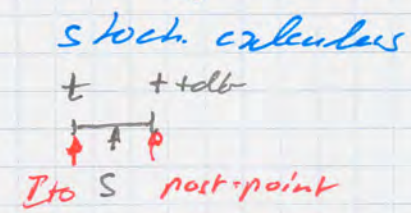 stoch. calculus
t t+dt
Ito S post-point